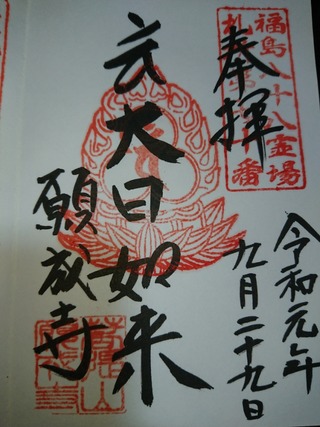 福島八十八霊場
奉拝
令和元年
九月二十九日
大日如来
願成寺